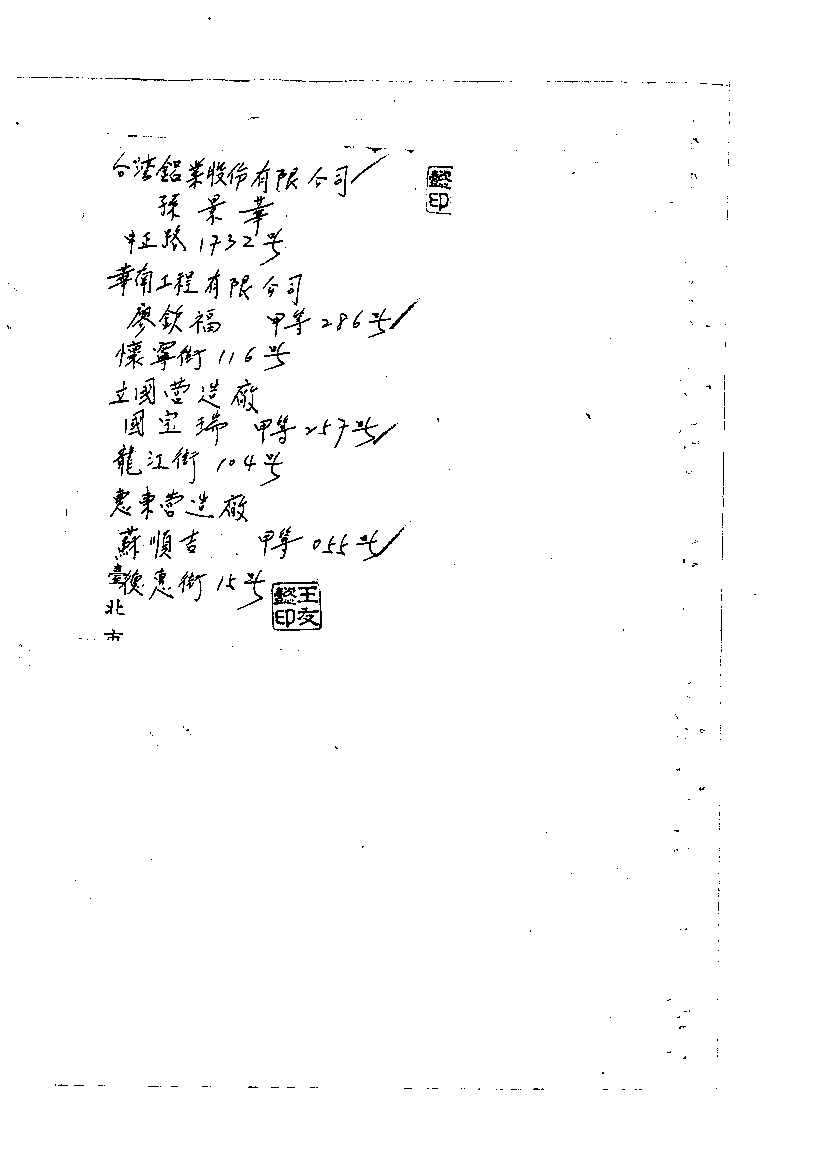 台湾鋁業股份有限公司
孫景華
中正路1732号
華南工程有限公司
廖欽福 甲等286号
懷寧街116号
立国营造廠
國宝瑞 甲等257号
龍江街104号
惠東营造廠
蘇順吉 甲等055号
德惠街15号
臺北市
懿印
王友懿印